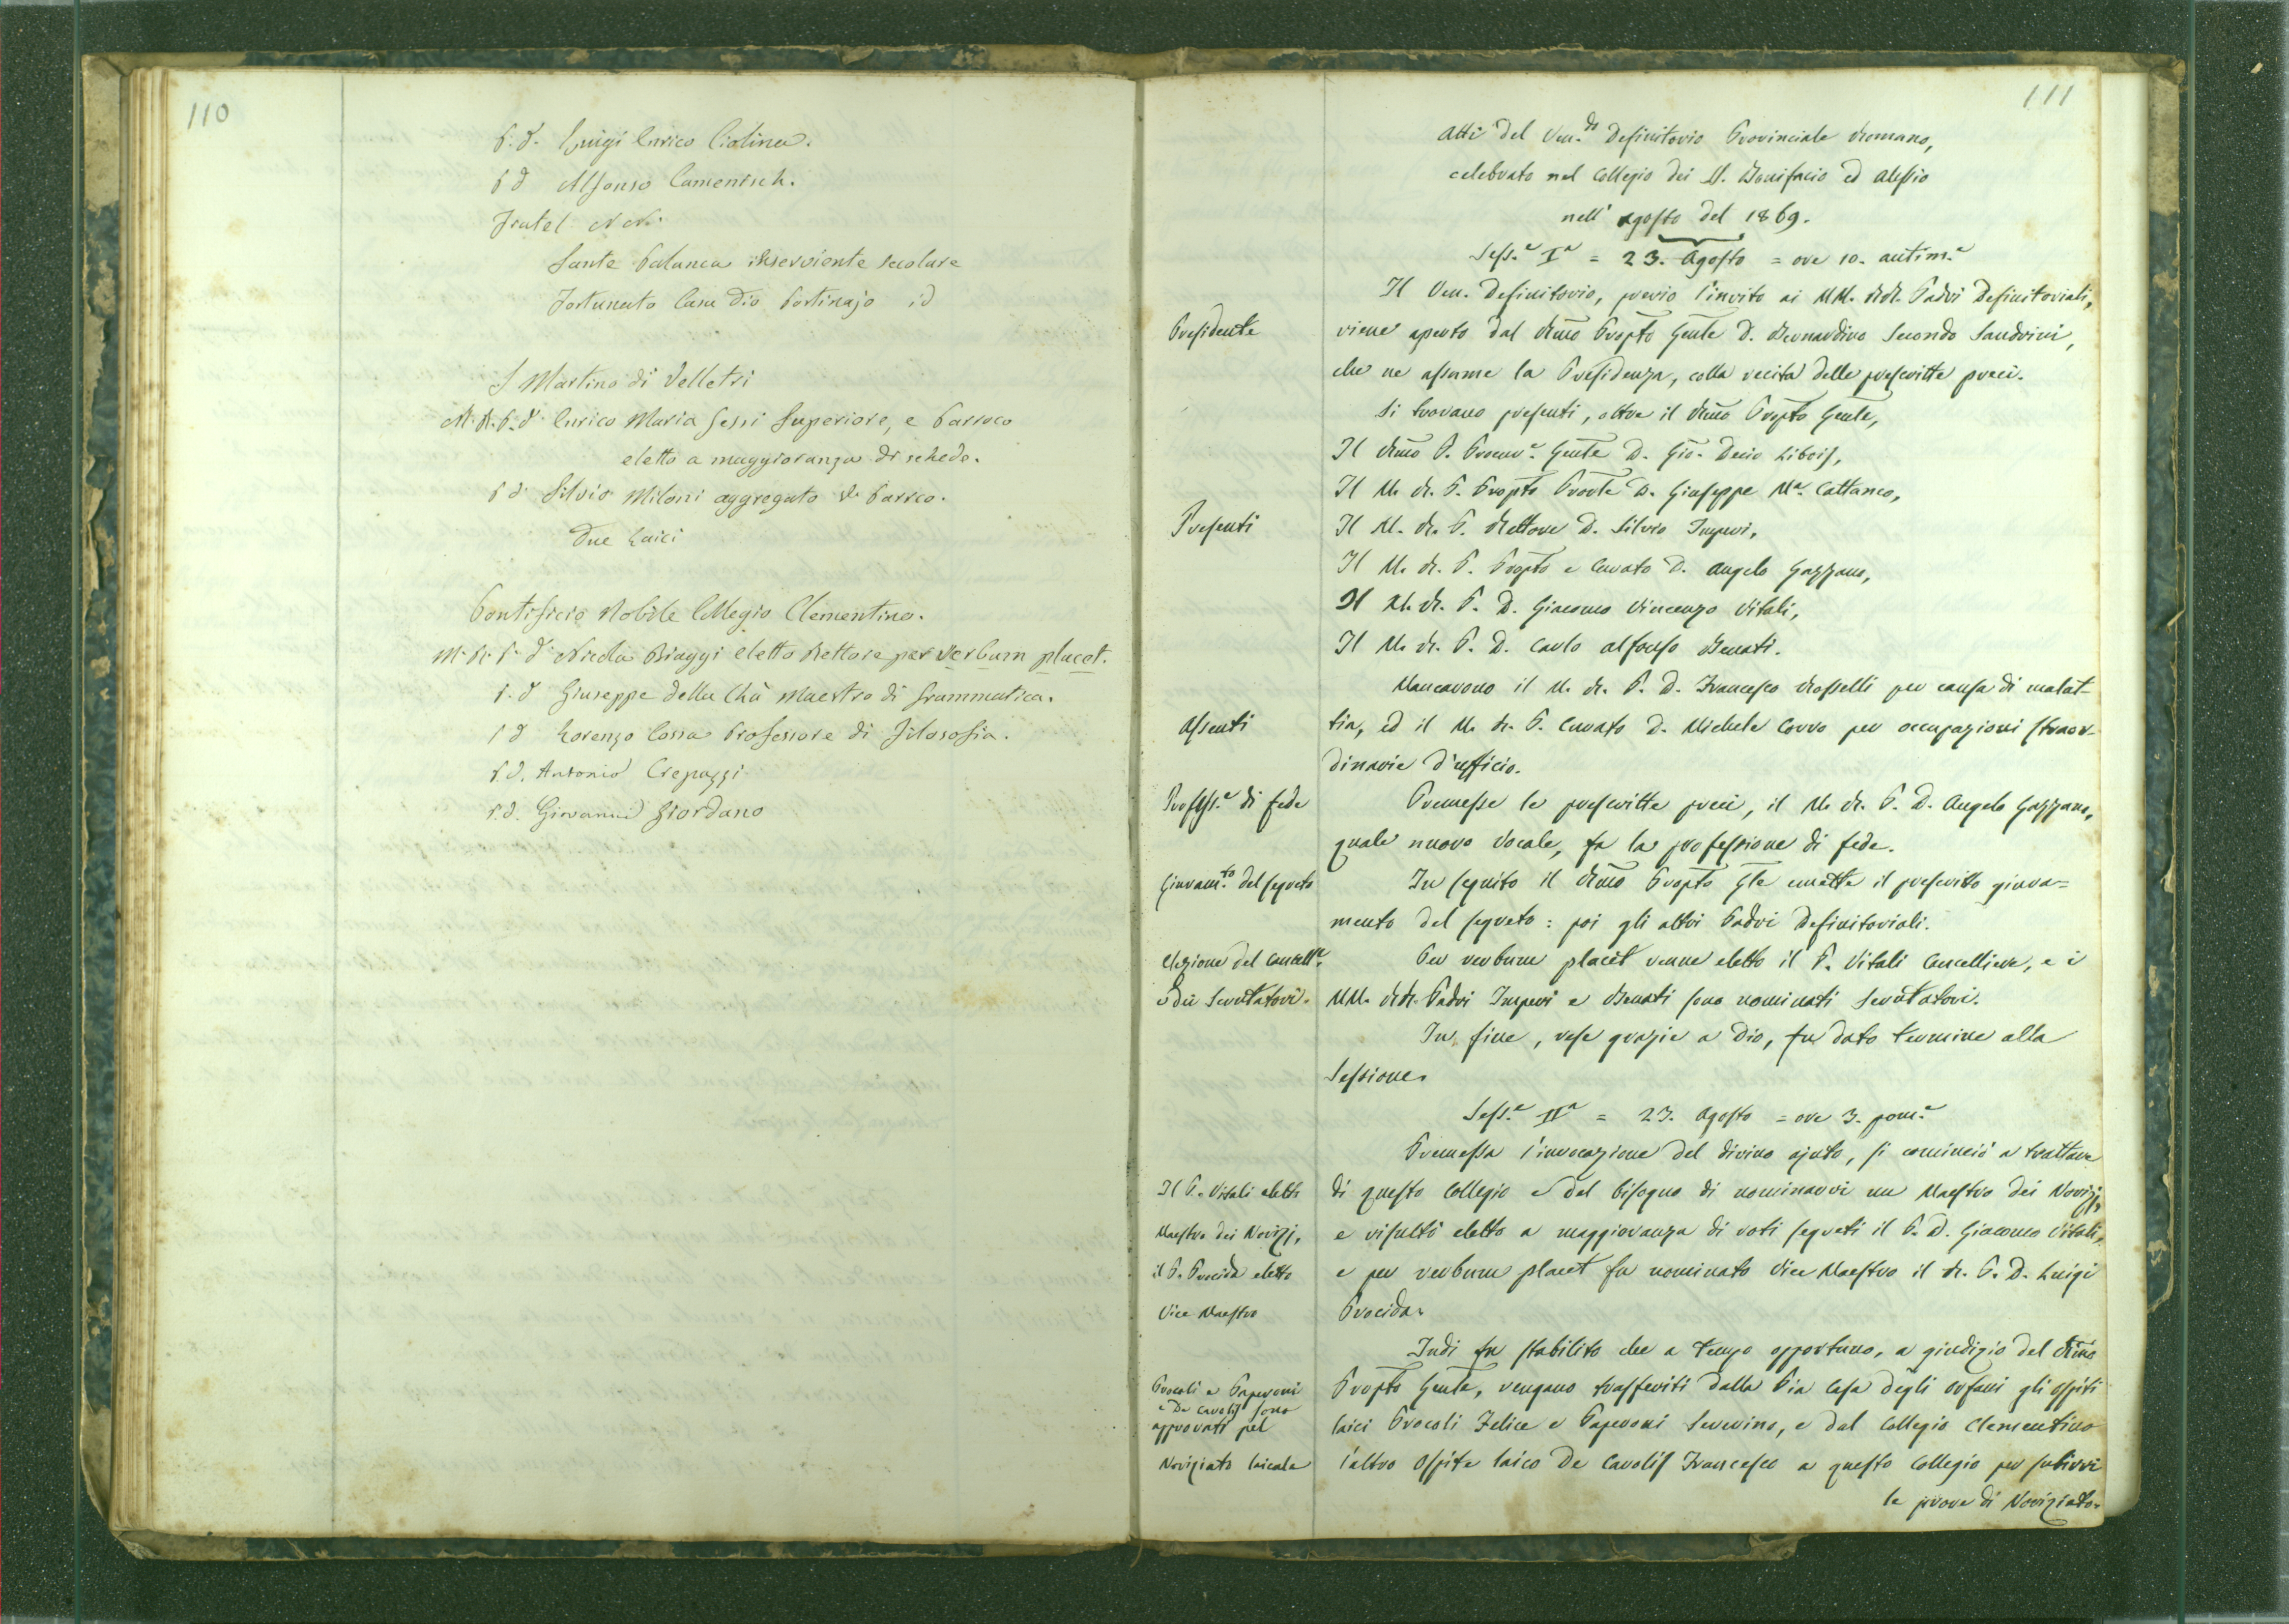 110
P. D. Luigi Enrico Ciolina.
P D Alfonso Camentsch.
Fratel N N.
Sante Palanca inserviente secolare
Fortunato Casadio Portinajo id
S Martino di Velletri
M. R. P. D. Enrico Maria Gessi Superiore, e Parroco
eletto a maggioranza di schede.
P D Silvio Miloni aggregato al Parroco.
Due Laici
Pontificio Nobile Collegio Clementino.
M. R. P. D. Nicola Biaggi eletto Rettore per verbum placet.
P. D Giuseppe della Chà Maestro di Grammatica.
P D Lorenzo Cossa Professore di Filosofia.
P. D. Antonio Crepazzi
P. D. Giovanni Giordano
111
Atti del Ven.do Definitorio Provinciale Romano,
celebrato nel Collegio dei SS. Bonifacio ed Alessio
nell' agosto del 1869.
Sess.e I.a = 23. Agosto = ore 10. antim.e
Il Ven. Definitorio, previo l'invito ai MM. RR. Padri Definitoriali,
Presidente
viene aperto dal Rmo Propto Gente D. Bernardino Secondo Sandrini,
che ne assume la Presidenza, colla recita delle prescritte preci.
Si trovano presenti, oltre il Rmo Propto Gente,
Il Rmo P. Procur.e Gente D. Gio. Decio Libois,
Il M. R. P. Propto Provle D. Giuseppe M.a Cattaneo,
Presenti
Il M. R. P. Rettore D. Silvio Imperi,
Il M. R. P. Propto e Curato D. Angelo Gazzano,
Il M. R. P. D. Giacomo Vincenzo Vitali,
Il M. R. P. D. Carlo Alfonso Benati.
Mancarono il M. R. P. D. Francesco Rosselli per causa di malat-
Assenti
tia, ed il M. R. P. Curato D. Michele Corvo per occupazioni straor-
dinarie d'ufficio.
Profess.e di fede
Premesse le prescritte preci, il M. R. P. D. Angelo Gazzano,
quale nuovo Vocale, fa la professione di fede.
Giuram.to del segreto
In seguito il Rmo Propto Gle emette il prescritto giura=
mento del segreto: poi gli altri Padri Definitoriali.
Elezione del Cancell.e
Per verbum placet venne eletto il P. Vitali Cancelliere, e i
e dei Scrutatori.
MM. RR. Padri Imperi e Benati sono nominati Scrutatori.
In fine, rese grazie a Dio, fu dato termine alla
Sessione.
Sess.e II.a = 23. Agosto = ore 3. pom.e
Premessa l'invocazione del divino ajuto, si cominciò a trattare
Il P. Vitali eletto
di questo Collegio e del bisogno di nominarvi un Maestro dei Novizj,
Maestro dei Novizj,
e risultò eletto a maggioranza di voti segreti il P. D. Giacomo Vitali,
il P. Procida eletto
e per verbum placet fu nominato Vice Maestro il R. P. D. Luigi
Vice Maestro
Procida.
Indi fu stabilito che a tempo opportuno, a giudizio del Rmo
Procoli e Paperoni
Propto Gente, vengano trasferiti dalla Pia Casa degli orfani gli Ospiti
e De Carolis sono
approvati pel
laici Procoli Felice e Paperoni Severino, e dal Collegio Clementino
Noviziato laicale
l'altro Ospite laico De Carolis Francesco a questo Collegio per subirvi
le prove di Noviziato.